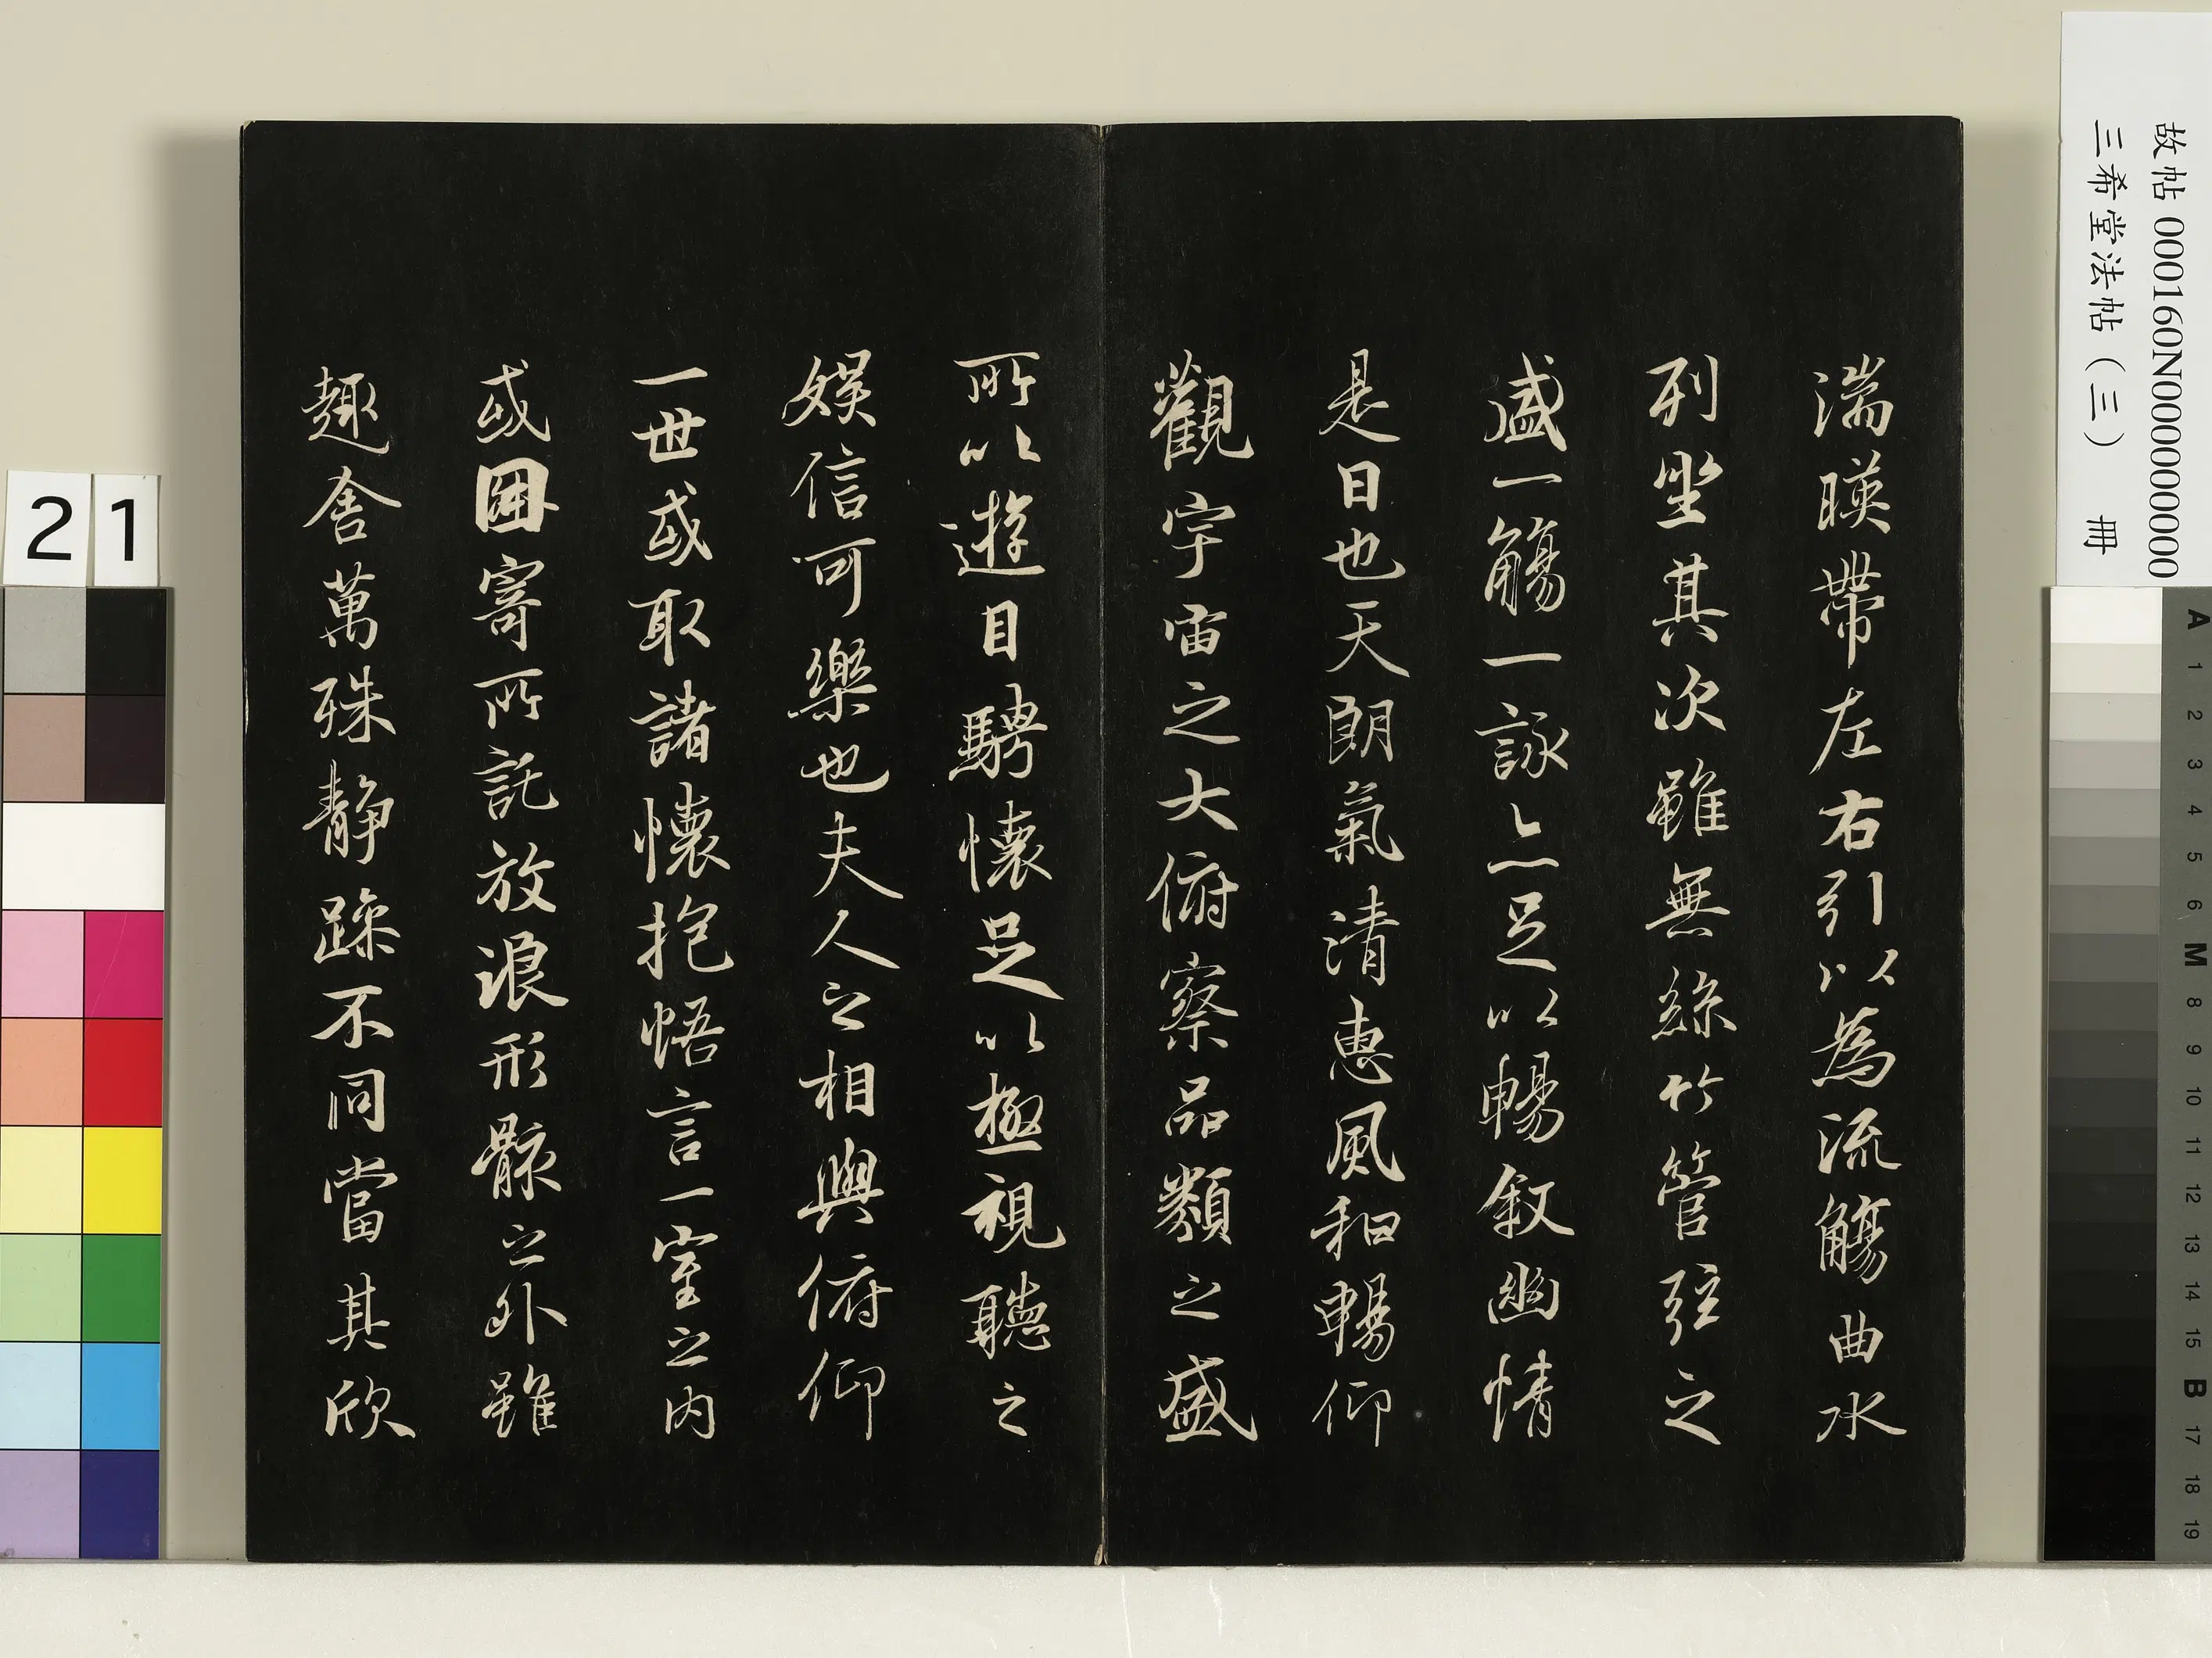 湍暎帶左右引以為流觴曲水
列坐其次雖無絲竹管弦之
盛一觴一詠亦足以暢敘幽情
是日也天朗氣清惠風和暢仰
觀宇宙之大俯察品類之盛
所以遊目騁懷足以極視聽之
娛信可樂也夫人之相與俯仰
一世或取諸懷抱悟言一室之內
或因寄所託放浪形骸之外雖
趣舍萬殊靜躁不同當其欣
故帖 000160N000000000
三希堂法帖（三） 冊
21
A 1 2 3 4 5 6 M 8 9 10 11 12 13 14 15 B 17 18 19